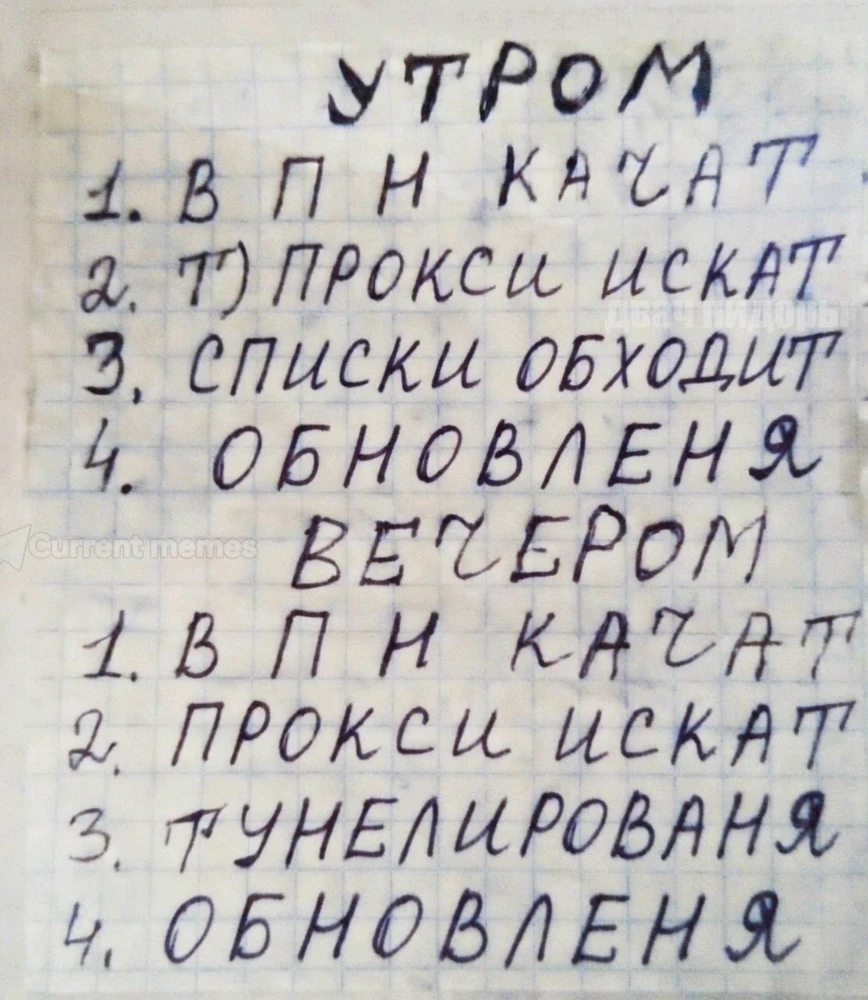 УТРОМ
1. В П Н КАЧАТ
2. Т) ПРОКСИ ИСКАТ
3. СПИСКИ ОБХОДИТ
4. ОБНОВЛЕНЯ
Current memes
ВЕЧЕРОМ
1. В П Н КАЧАТ
2. ПРОКСИ ИСКАТ
3. ТУНЕЛИРОВАНЯ
4. ОБНОВЛЕНЯ